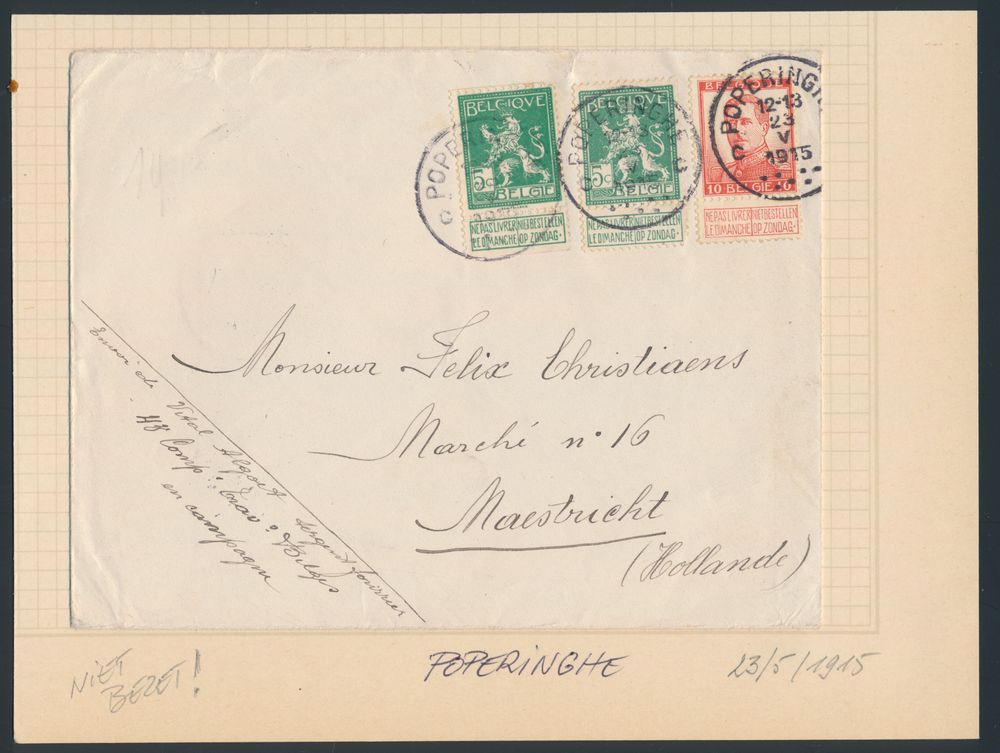 POPERINGHE
BELGIQVE
5c
BELGIË
NE PAS LIVRER NIET BESTELLEN
LE DIMANCHE OP ZONDAG
POPERINGHE
BELGIQVE
5c
BELGIË
NE PAS LIVRER NIET BESTELLEN
LE DIMANCHE OP ZONDAG
POPERINGHE
12-13
23
V
1915
C
10 BELGIE 10
NE PAS LIVRER NIET BESTELLEN
LE DIMANCHE OP ZONDAG
Monsieur Felix Christiaens
Marché n° 16
Maestricht
(Hollande)
Envoi de Vital Algoet sergent fourrier
Comp. Belges
en campagne
NIET
BEZET!
POPERINGHE
23/5/1915